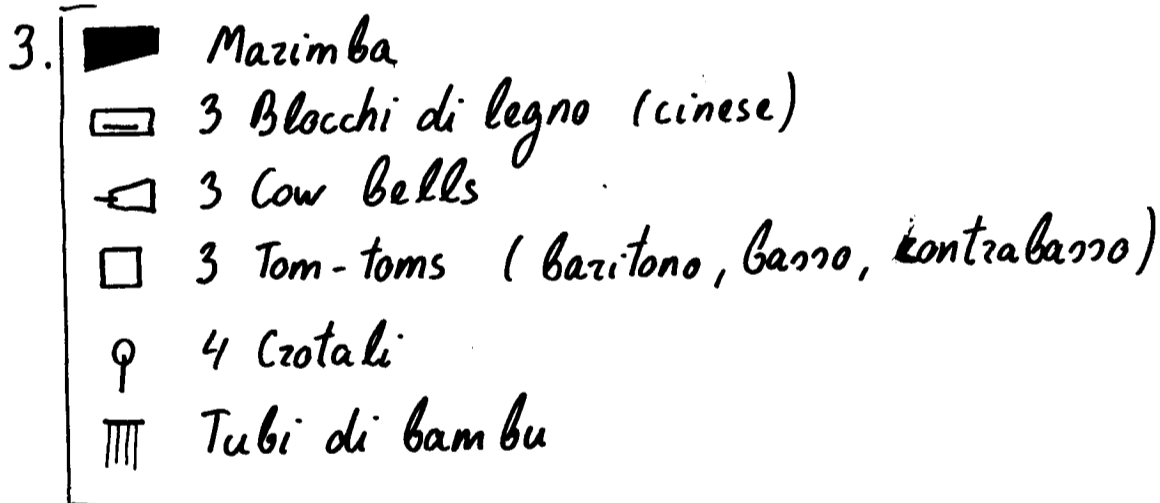 3. Marimba
3 Blocchi di legno (cinese)
3 Cow bells
3 Tom-toms (baritono, basso, kontrabasso)
4 Crotali
Tubi di bambu